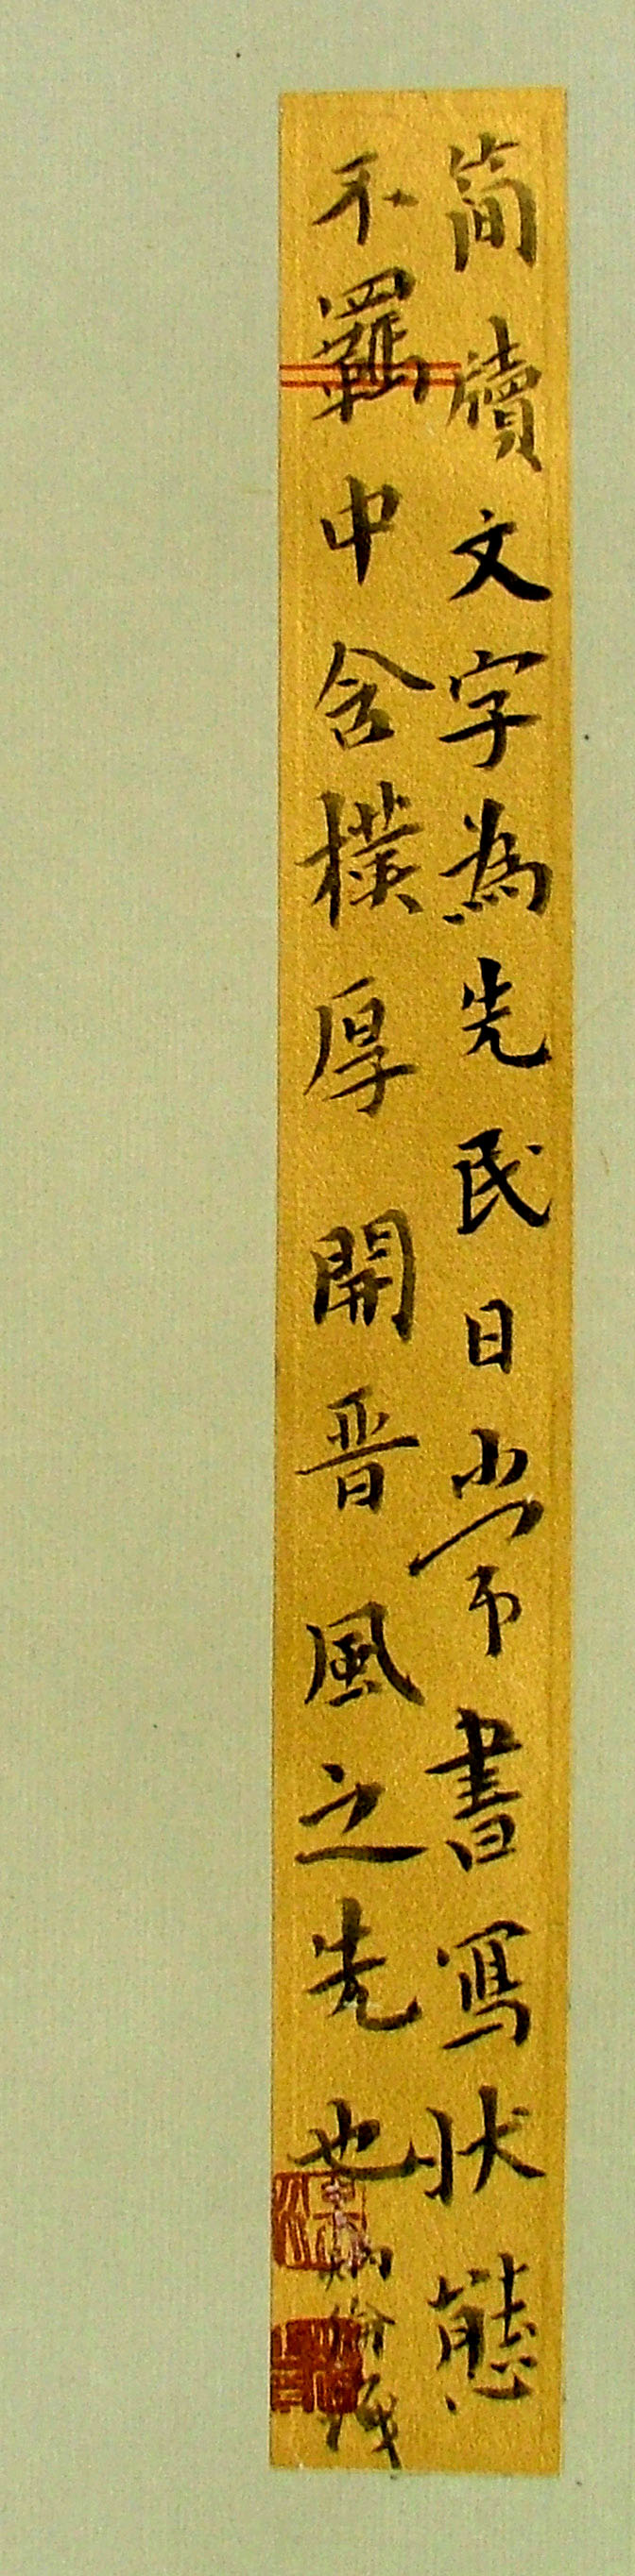 简牘文字為先民日常書寫狀態
不羈中含樸厚開晋風之先也